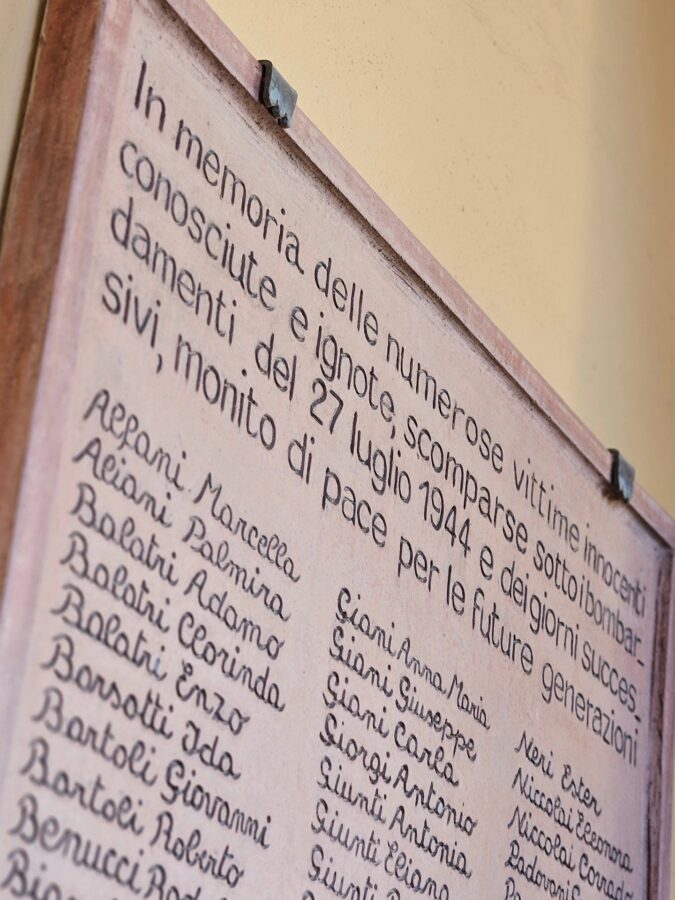 In memoria delle numerose vittime innocenti
conosciute e ignote, scomparse sotto i bombar_
damenti del 27 luglio 1944 e dei giorni succes_
sivi, monito di pace per le future generazioni
Alfani Marcella
Aliani Palmira
Balatri Adamo
Balatri Clorinda
Balatri Enzo
Barsotti Ida
Bartoli Giovanni
Bartoli Roberto
Benucci
Giani Anna Maria
Giani Giuseppe
Giani Carla
Giorgi Antonio
Giunti Antonia
Giunti Eliana
Giunti
Neri Ester
Niccolai Eleonora
Niccolai Corrado
Padovani